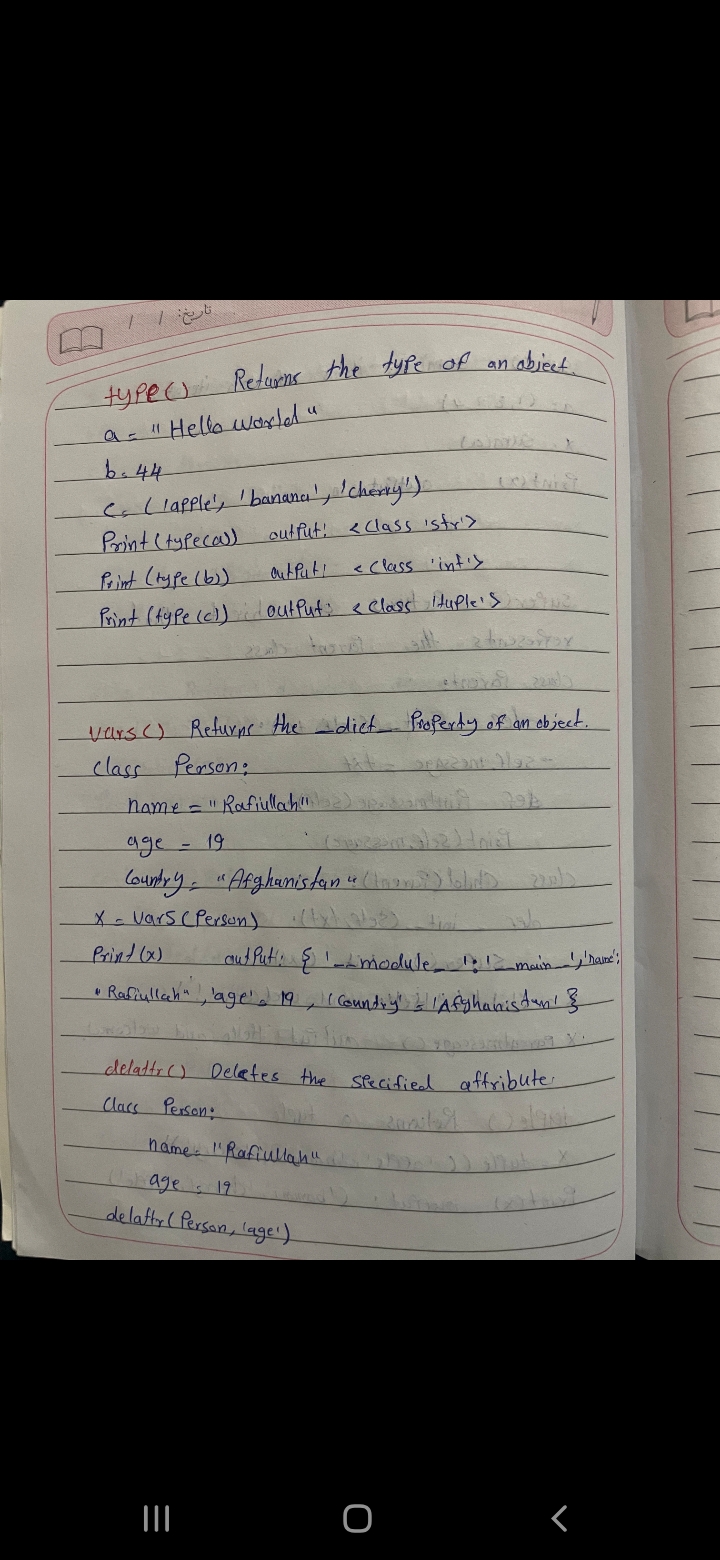 تاریخ: / /
type() Returns the type of an object.
a = "Hello world"
b = 44
c = ('apple', 'banana', 'cherry')
Print(type(a)) output: <class 'str'>
Print (type(b)) output: <class 'int'>
Print (type(c)) output: <class 'tuple'>
vars() Returns the _dict_ Property of an object.
class Person:
name = "Rafiullah"
age = 19
Country = "Afghanistan"
x = vars(Person)
Print(x) output: { '__module__': '__main__', 'name':
"Rafiullah", 'age' = 19, 'Country' = 'Afghanistan' }
delattr() Deletes the specified attribute.
Class Person:
name = "Rafiullah"
age = 19
delattr(Person, 'age')